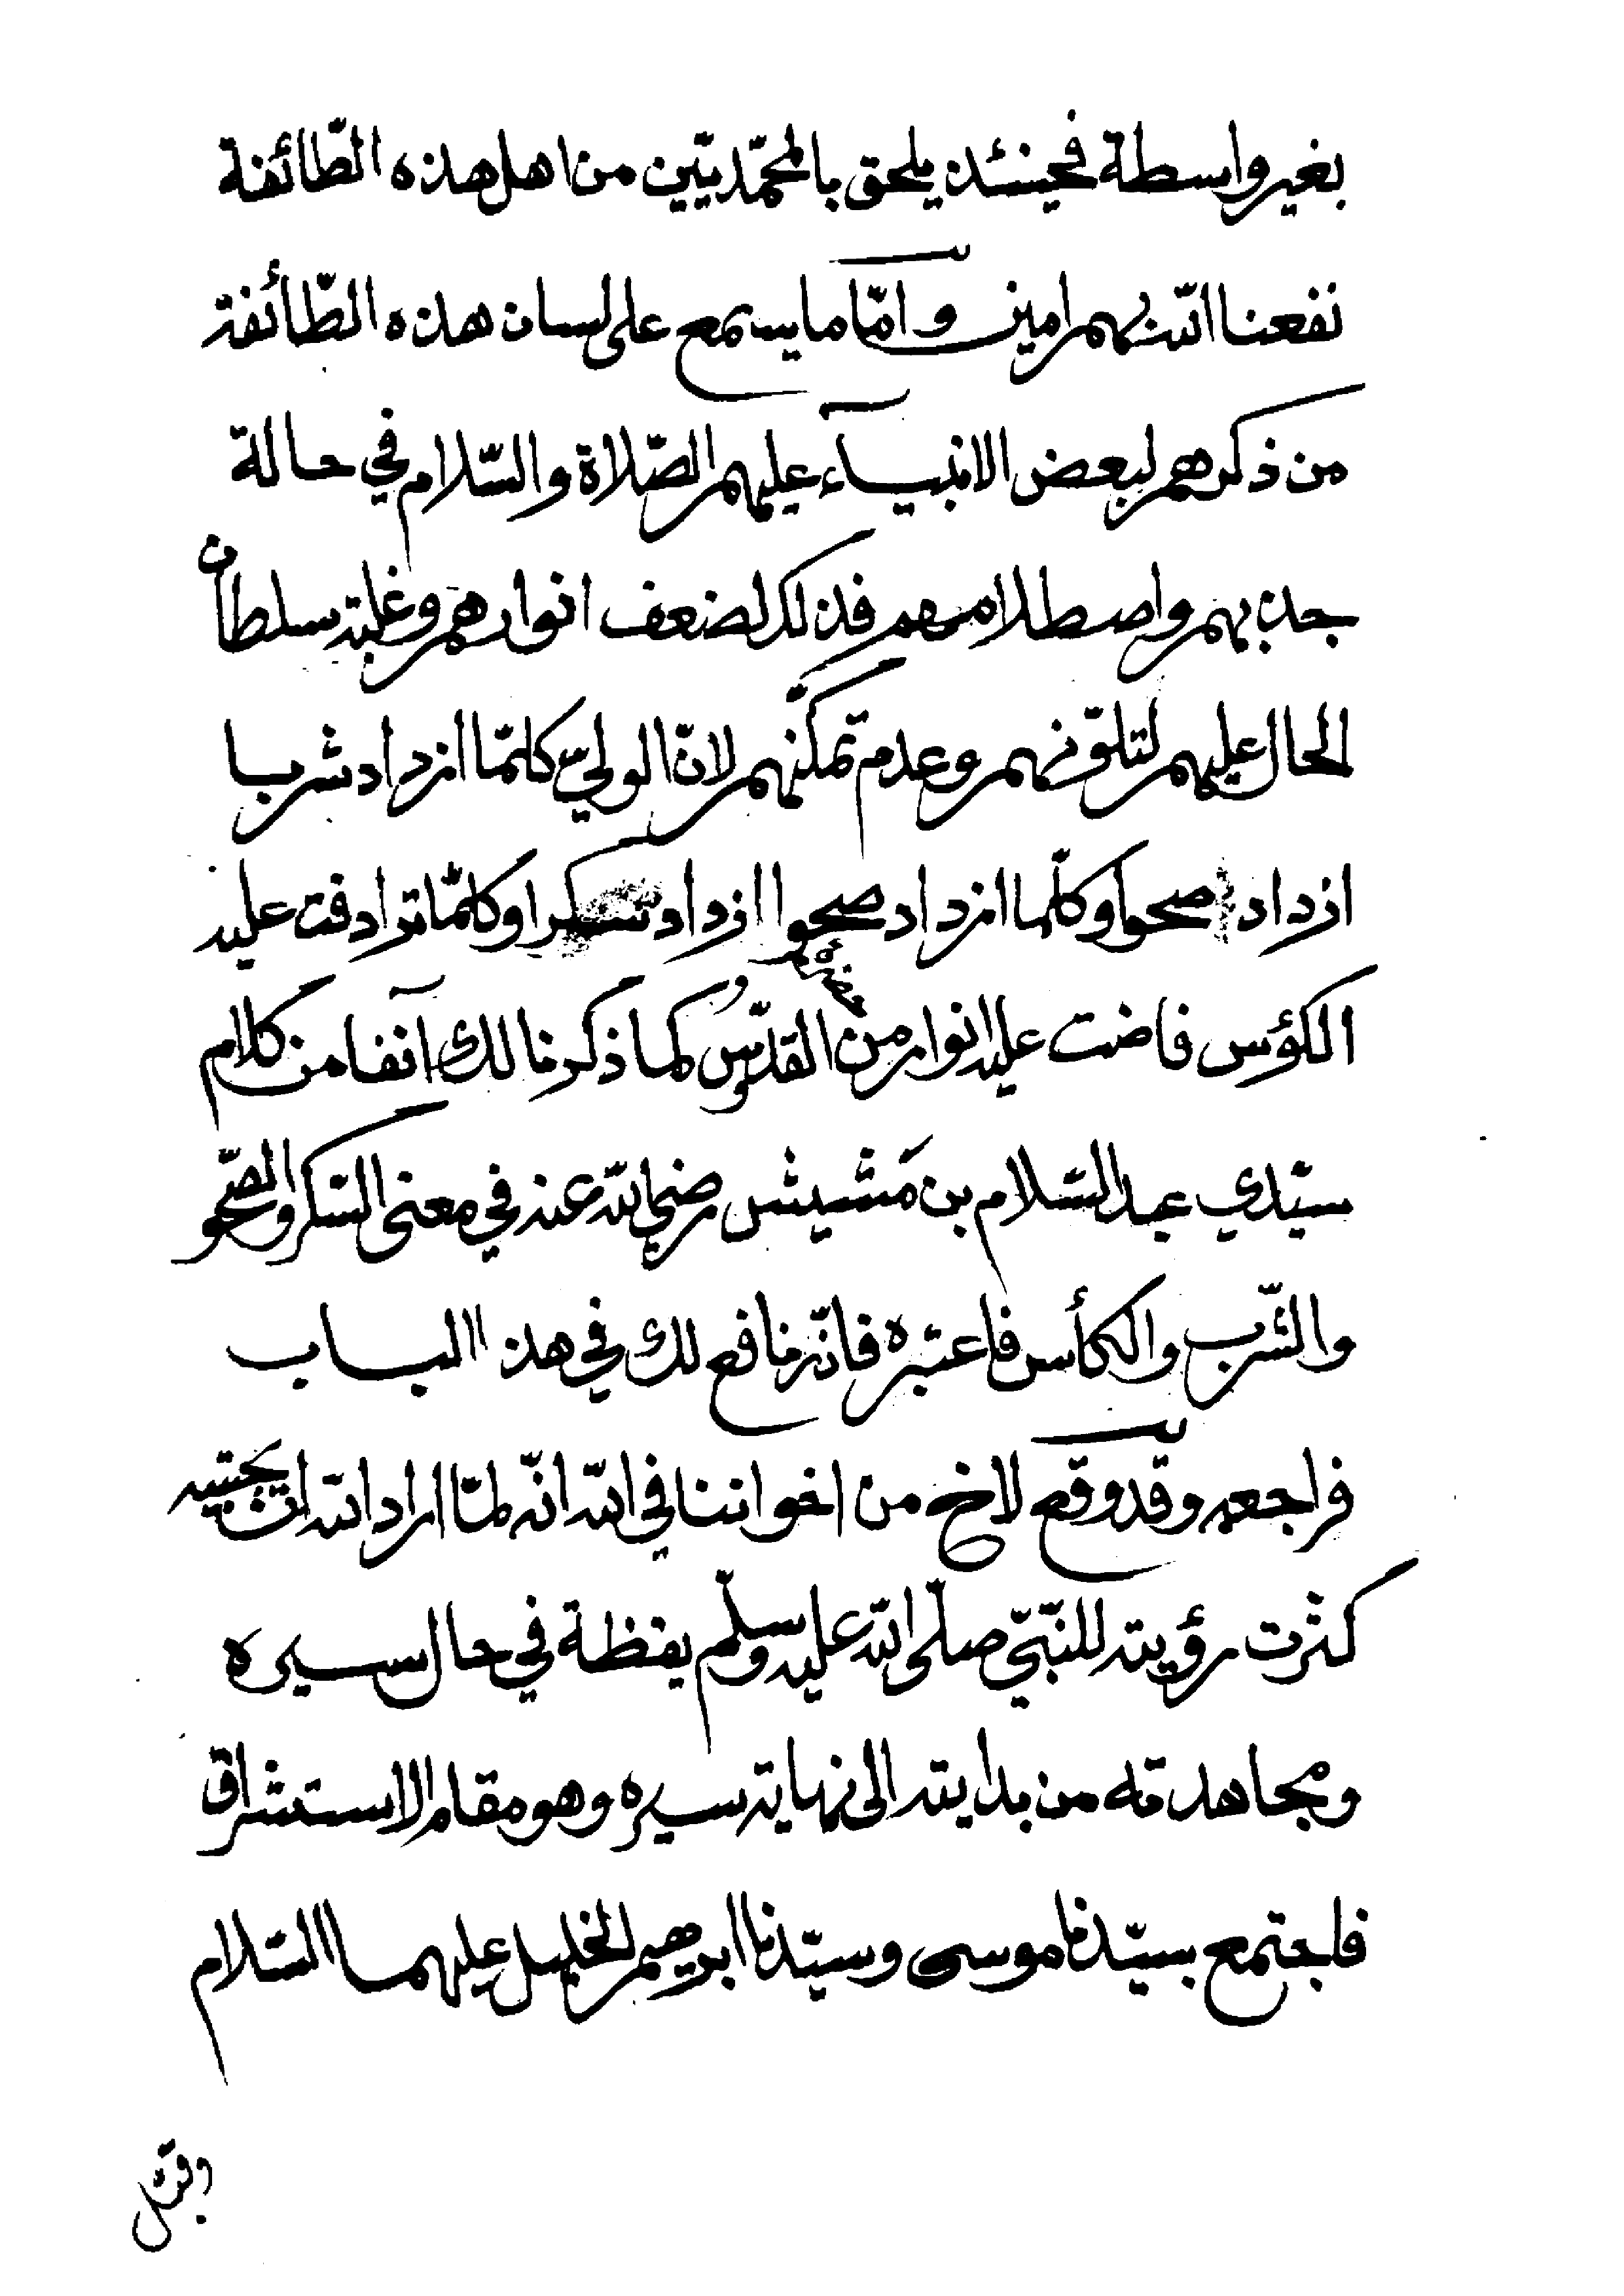 بغير واسطة فحينئذ يلحق بالمحمّديّين من اهل هذه الطّائفة
نفعنا الله بهم امين وامّا ما يسمع على لسان هذه الطّائفة
من ذكرهم لبعض الانبيآء عليهم الصّلاة والسّلام في حالة
جذبهم واصطلامهم فذلك لضعف انوارهم وغلبة سلطان
الحال عليهم لتلوّنهم وعدم تمكّنهم لانّ الوليّ كلمّا ازداد شربا
ازداد صحوا وكلّما ازداد صحوا ازداد سكرا وكلمّا ترادفت عليه
الكؤس فاضت عليه انوار من القدّوس كما ذكرنا لك آنفا من كلام
سيّدي عبد السّلام بن مَشيش رضي الله عنه في معنى السّكر والصّحو
والشّرب والكأس فاعتبره فانّه نافع لك في هذا الباب
فراجعه وقد وقع لاخ من اخواننا في الله انّه لمّا اراد الله ان يجتبيه
كثرت رؤيته للنّبيّ صلّى الله عليه وسلّم يقظة في حال سيره
ومجاهدته من بدايته الى نهاية سيره وهو مقام الاستشراق
فاجتمع بسيّدنا موسى وسيّدنا ابرهيم الخليل عليهما السّلام